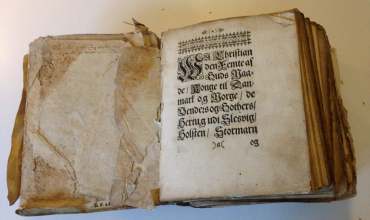 WI Christian
den Femte af
Guds Naa-
de / Konge til Dan-
mark og Norge / de
Venders og Gothers /
Hertug udi Slesvig /
Holsten / Stormarn
og